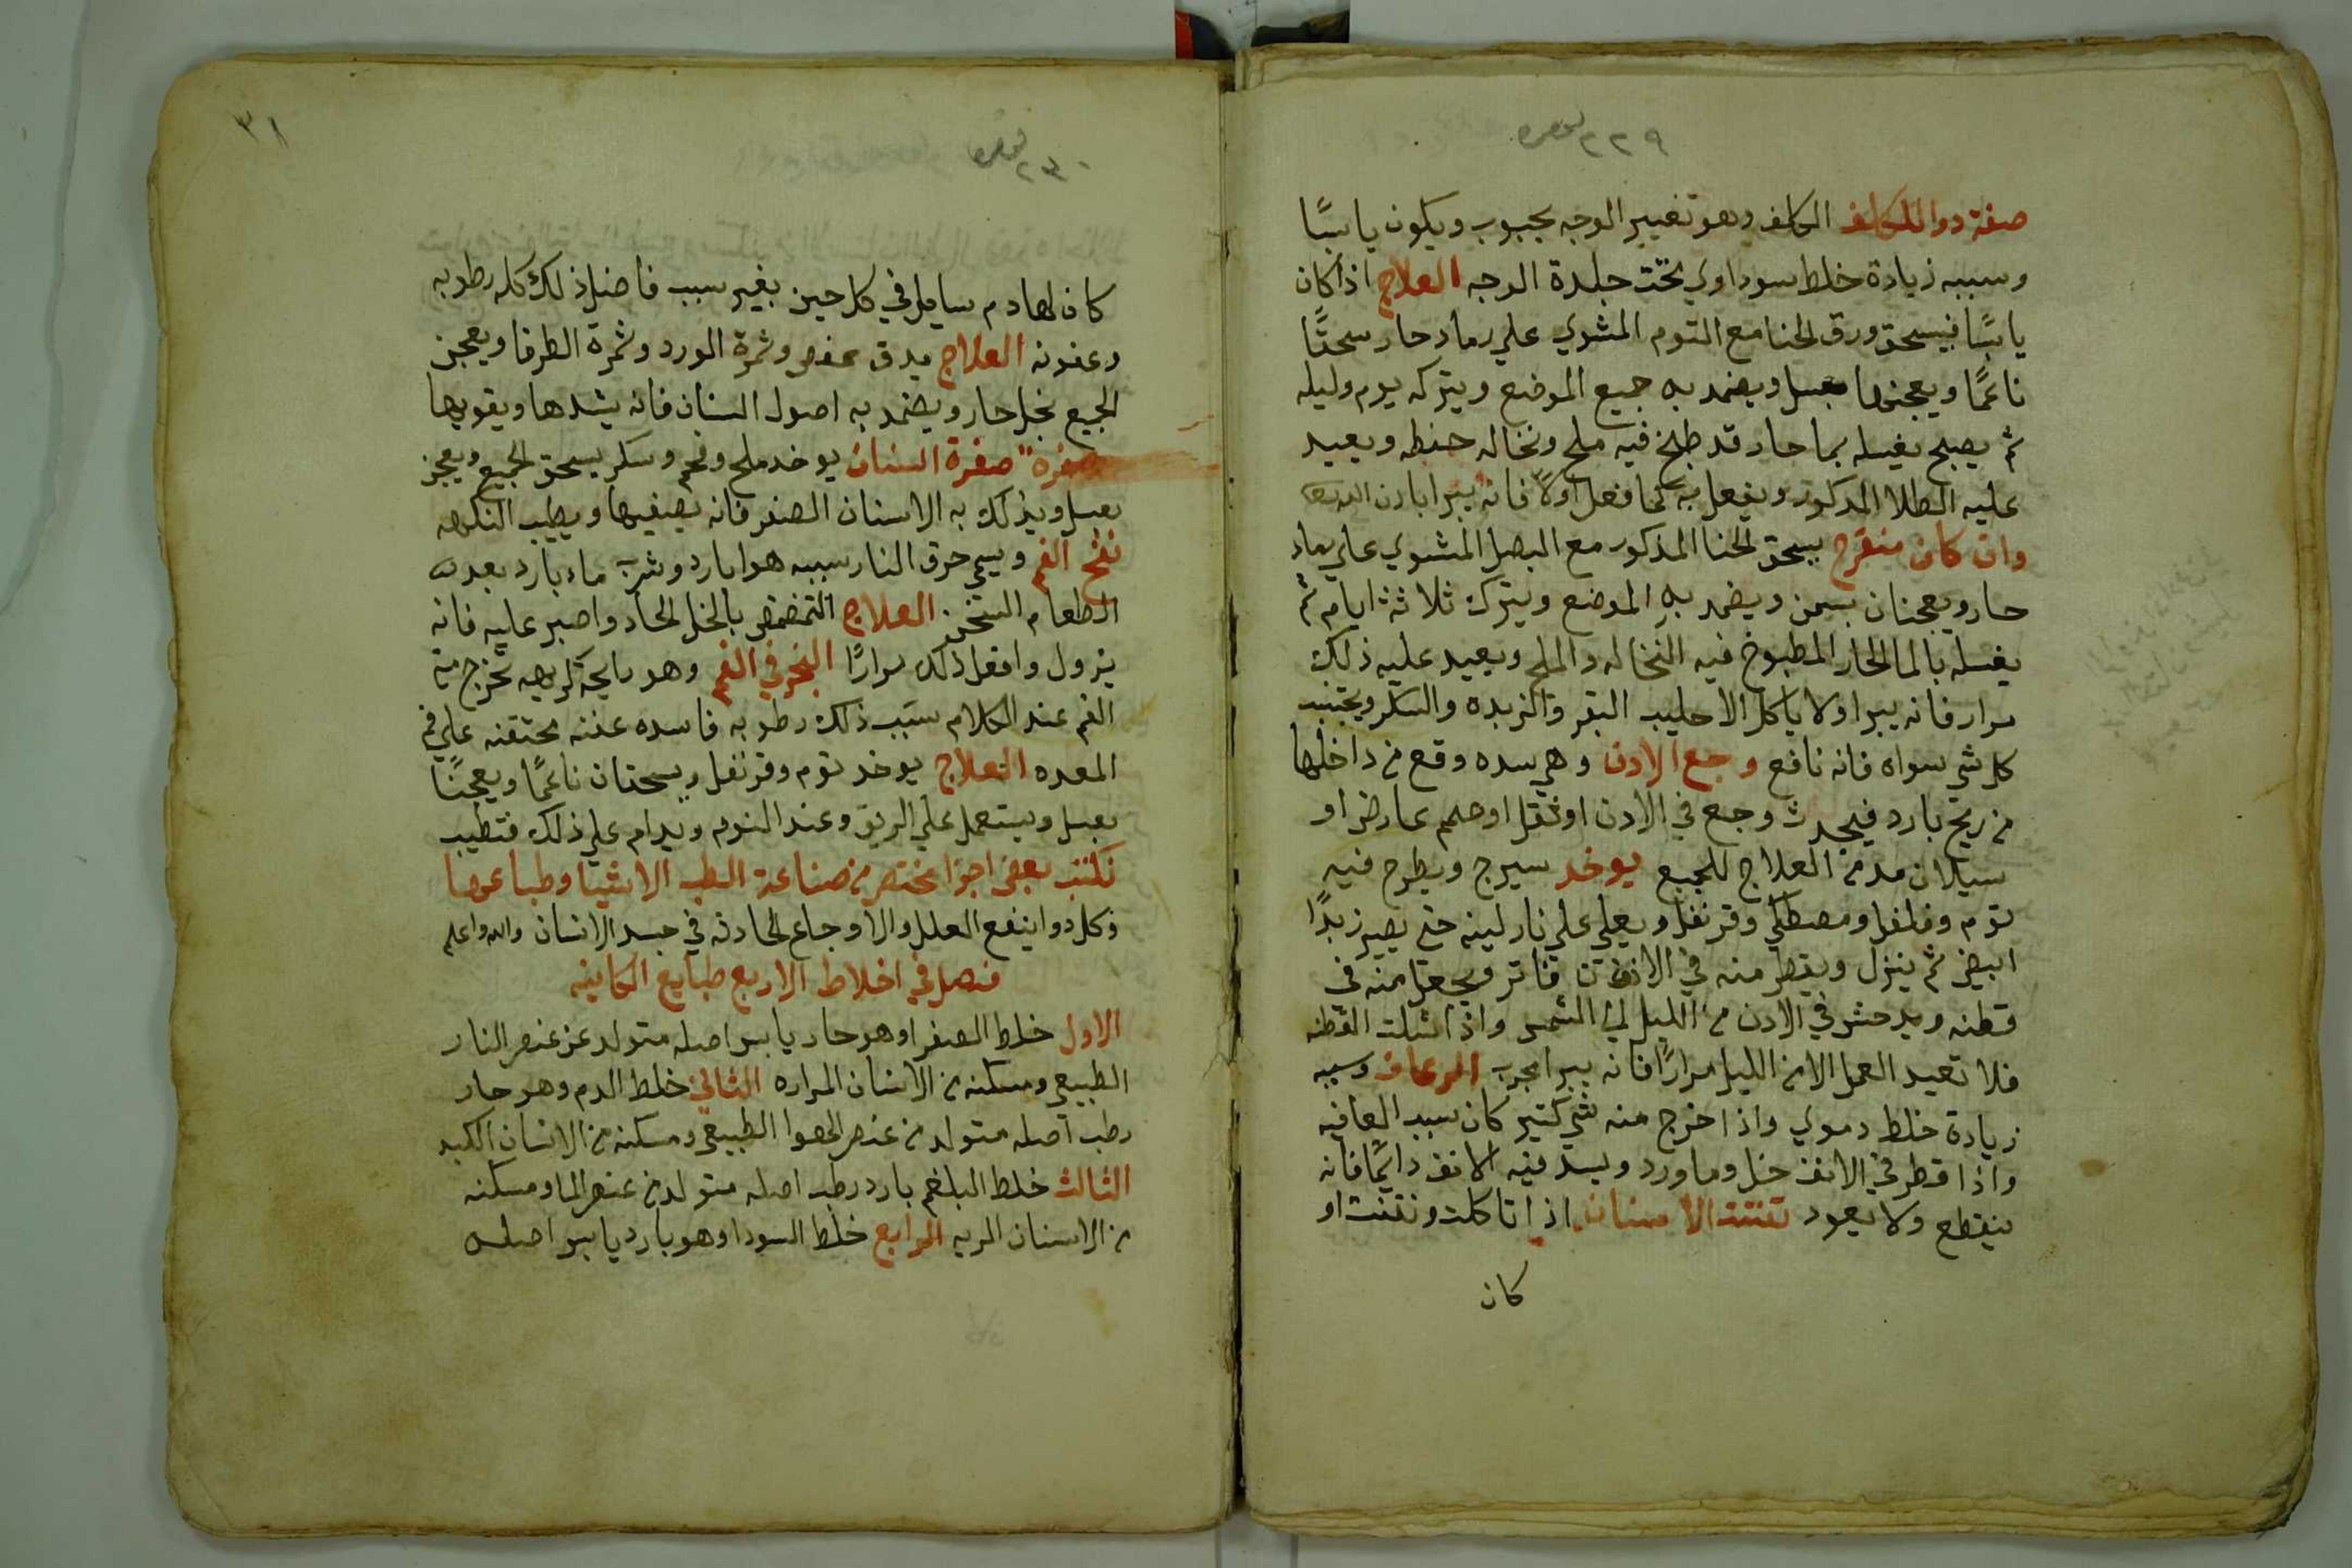 ٢٢٩
صفة دوا للكلف الكلف وهو تغيير الوجه بحبوب ويكون يابسًا
وسببه زيادة خلط سوداوي تحت جلدة الوجه العلاج اذا كان
يابسًا فيسحق ورق الحنا مع التوم المشوي علي رماد حار سحقًا
ناعمًا ويعجنها بعسل ويضمد به جميع الموضع ويتركه يوم وليله
ثم يصبح يغسله بما حار قد طبخ فيه ملح ونخاله حنطه ويعيد
عليه الطلا المدكور ويفعل به كما فعل اولاً فانه يبرا بادن الله
وان كان متقرح يسحق الحنا المذكور مع البصل المشوي علي رماد
حار ويعجنان بسمن ويضمد به الموضع ويترك ثلاثة ايام ثم
يغسله بالما الحار المطبوخ فيه النخاله والملح ويعيد عليه ذلك
مرار فانه يبرا ولا ياكل الا حليب البقر والزبده والسكر ويجتنب
كل شي سواه فانه نافع وجع الادن وهي سده وقع من داخلها
من ريح بارد فيحدث وجع في الادن او ثقل او صمم عارض او
سيلان مده من العلاج للجميع يوخد سيرج ويطرح فيه
توم وفلفل ومصطكي وقرنفل ويغلي علي نار لينه حتي يصير زبدًا
ابيض ثم ينزل ويقطر منه في الادن فاتر ويجعل منه في
قطنه ويدحش في الادن من الليل الي الشمس واذا اشلت القطنه
فلا تعيد العمل الا من الليل مرارًا فانه يبرا مجرب الرعاف وسببه
زيادة خلط دموي واذا خرج منه شي كتير كان سبب العافيه
واذا قطر في الانف خل وما ورد ويسد فيه الانف دايمًا فانه
ينقطع ولا يعود تفتت الاسنان اذا تاكلت وتفتت او
كان
٣١
٢٣٠
كان لها دم سايل في كل حين بغير سبب فاصل ذلك كله رطوبه
وعفونه العلاج يدق عفص وثمرة الورد وثمرة الطرفا ويعجن
الجميع بخل حار ويضمد به اصول السنان فانه يشدها ويقويها
صفره صفرة السنان يوخد ملح وفحم وسكر يسحق الجميع ويعجن
بعسل ويذلك به الاسنان الصفر فانه يصفيها ويطيب النكهه
نفخ الفم ويسمي حرق النار سببه هوا بارد وشرب ماء بارد بعد
الطعام السخن العلاج التمضمض بالخل الحاد واصبر عليه فانه
يزول وافعل ذلك مرارًا البخر في الفم وهو رايحة كريهه تخرج من
الفم عند الكلام سبب ذلك رطوبه فاسده عفنه محتقنه علي فم
المعده العلاج يوخد توم وقرنفل ويسحقان ناعمًا ويعجنًا
بعسل ويستعمل علي الريق وعند النوم ويدام علي ذلك فتطيب
نكتب بعض اجزا مختصر من صناعة الطب الاشيا وطباعها
وكل دوا ينفع العلل والاوجاع الحادثه في جسد الانسان والله اعلم
فصل في اخلاط الاربع طبايع الكاينه
الاول خلط الصفرا وهو حار يابس اصله متولد عن عنصر النار
الطبيعي ومسكنه من الانسان المراره الثاني خلط الدم وهو حار
رطب اصله متولد من عنصر الهوا الطبيعي ومسكنه من الانسان الكبد
الثالث خلط البلغم بارد رطب اصله متولد من عنصر الما ومسكنه
من الانسان الريه الرابع خلط السودا وهو بارد يابس اصله